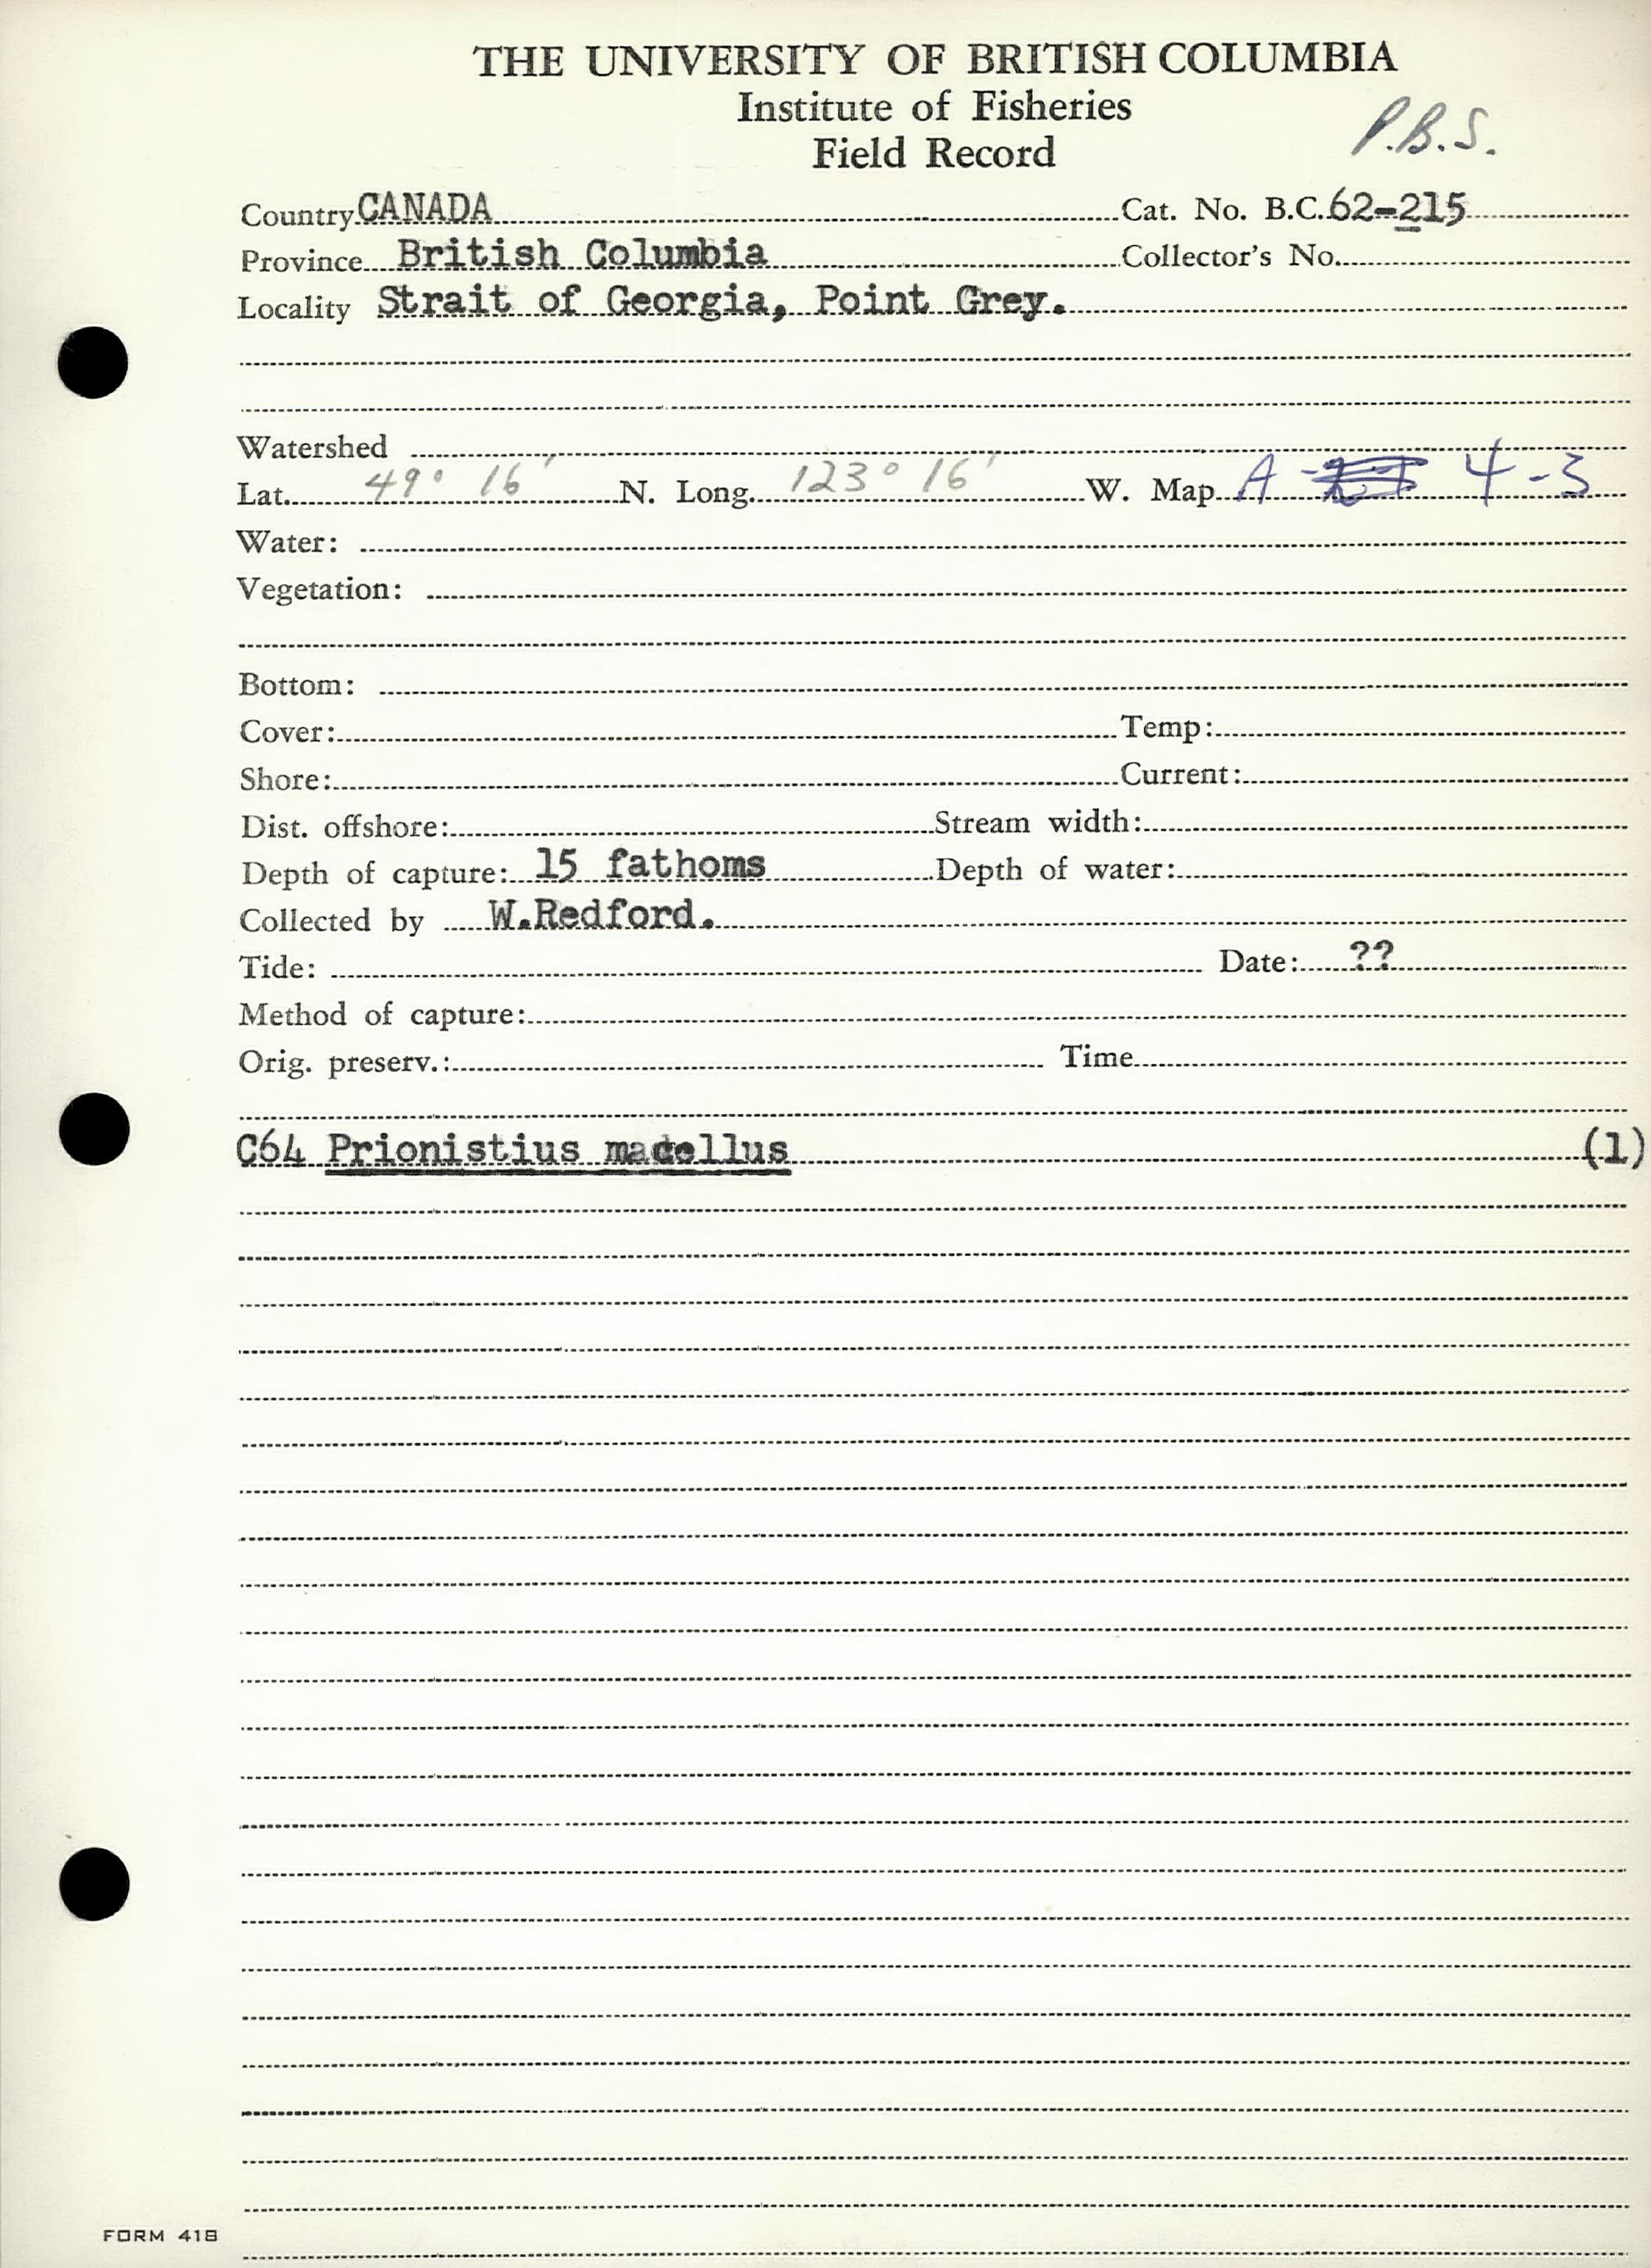 THE UNIVERSITY OF BRITISH COLUMBIA
Institute of Fisheries
Field Record
P.B.S.
Country CANADA Cat. No. B.C. 62-215
Province British Columbia Collector's No.
Locality Strait of Georgia, Point Grey.
Watershed
Lat. 49° 16' N. Long. 123° 16' W. Map A - 4-3
Water:
Vegetation:
Bottom:
Cover: Temp:
Shore: Current:
Dist. offshore: Stream width:
Depth of capture: 15 fathoms Depth of water:
Collected by W.Redford.
Tide: Date: ??
Method of capture:
Orig. preserv.: Time
C64 Prionistius macellus (1)
FORM 418